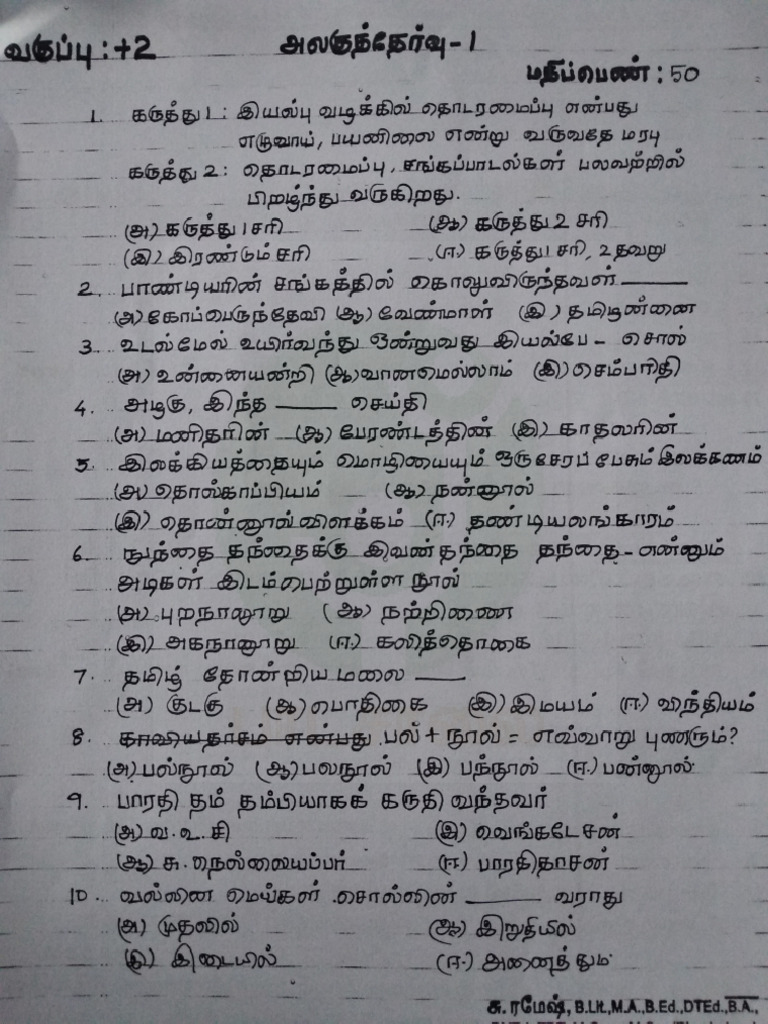 வகுப்பு : +2 அலகுத்தேர்வு - 1
மதிப்பெண் : 50
1. கருத்து 1 : இயல்பு வழக்கில் தொடரமைப்பு என்பது
எழுவாய், பயனிலை என்று வருவதே மரபு
கருத்து 2 : தொடரமைப்பு, சங்கப்பாடல்கள் பலவற்றில்
பிறழ்ந்து வருகிறது.
(அ) கருத்து 1 சரி (ஆ) கருத்து 2 சரி
(இ) இரண்டும் சரி (ஈ) கருத்து 1 சரி, 2 தவறு
2. பாண்டியரின் சங்கத்தில் கொலுவிருந்தவள் ______
(அ) கோப்பெருந்தேவி (ஆ) வேண்மாள் (இ) தமிழன்னை
3. உடல்மேல் உயிர்வந்து ஒன்றுவது இயல்பே - சொல்
(அ) உன்னையன்றி (ஆ) வானமெல்லாம் (இ) செம்பரிதி
4. அழகு, இந்த ______ செய்தி
(அ) மனிதரின் (ஆ) பேரண்டத்தின் (இ) காதலரின்
5. இலக்கியத்தையும் மொழியையும் ஒருசேரப் பேசும் இலக்கணம்
(அ) தொல்காப்பியம் (ஆ) நன்னூல்
(இ) தொன்னூல்விளக்கம் (ஈ) தண்டியலங்காரம்
6. நுந்தை தந்தைக்கு இவன்தந்தை தந்தை - என்னும்
அடிகள் இடம்பெற்றுள்ள நூல்
(அ) புறநானூறு (ஆ) நற்றிணை
(இ) அகநானூறு (ஈ) கலித்தொகை
7. தமிழ் தோன்றிய மலை ______
(அ) குடகு (ஆ) பொதிகை (இ) இமயம் (ஈ) விந்தியம்
8. காவியதர்சம் என்பது பல் + நூல் = எவ்வாறு புணரும்?
(அ) பல்நூல் (ஆ) பலநூல் (இ) பந்நூல் (ஈ) பன்னூல்
9. பாரதி தம் தம்பியாகக் கருதி வந்தவர்
(அ) வ. உ. சி (இ) வெங்கடேசன்
(ஆ) சு. நெல்லையப்பர் (ஈ) பாரதிதாசன்
10. வல்லின மெய்கள் சொல்லின் ______ வராது
(அ) முதலில் (ஆ) இறுதியில்
(இ) இடையில் (ஈ) அனைத்தும்
சு. ரமேஷ், B.Lit.,M.A.,B.Ed.,DTEd.,B.A.,